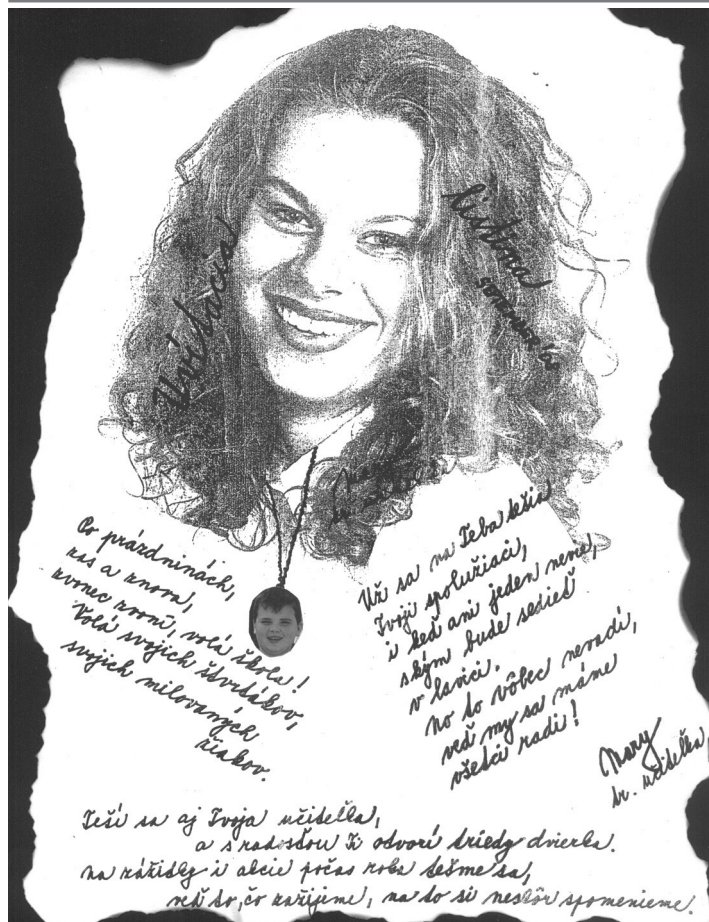 Uvítacia
listina
september '08
Mary
tr. učiteľka
Po prázdninách,
zas a znova,
zvonec zvoní, volá škola!
Volá svojich štvrtákov,
svojich milovaných
žiakov.
Už sa na Teba tešia
Tvoji spolužiaci,
i keď ani jeden nevie,
s kým bude sedieť
v lavici.
No to vôbec nevadí,
veď my sa máme
všetci radi!
Mary
tr. učiteľka
Teší sa aj Tvoja učiteľka,
a s radosťou Ti otvorí triedy dvierka.
Na zážitky i akcie počas roka tešme sa,
veď to, čo zažijeme, na to si neskôr spomenieme.